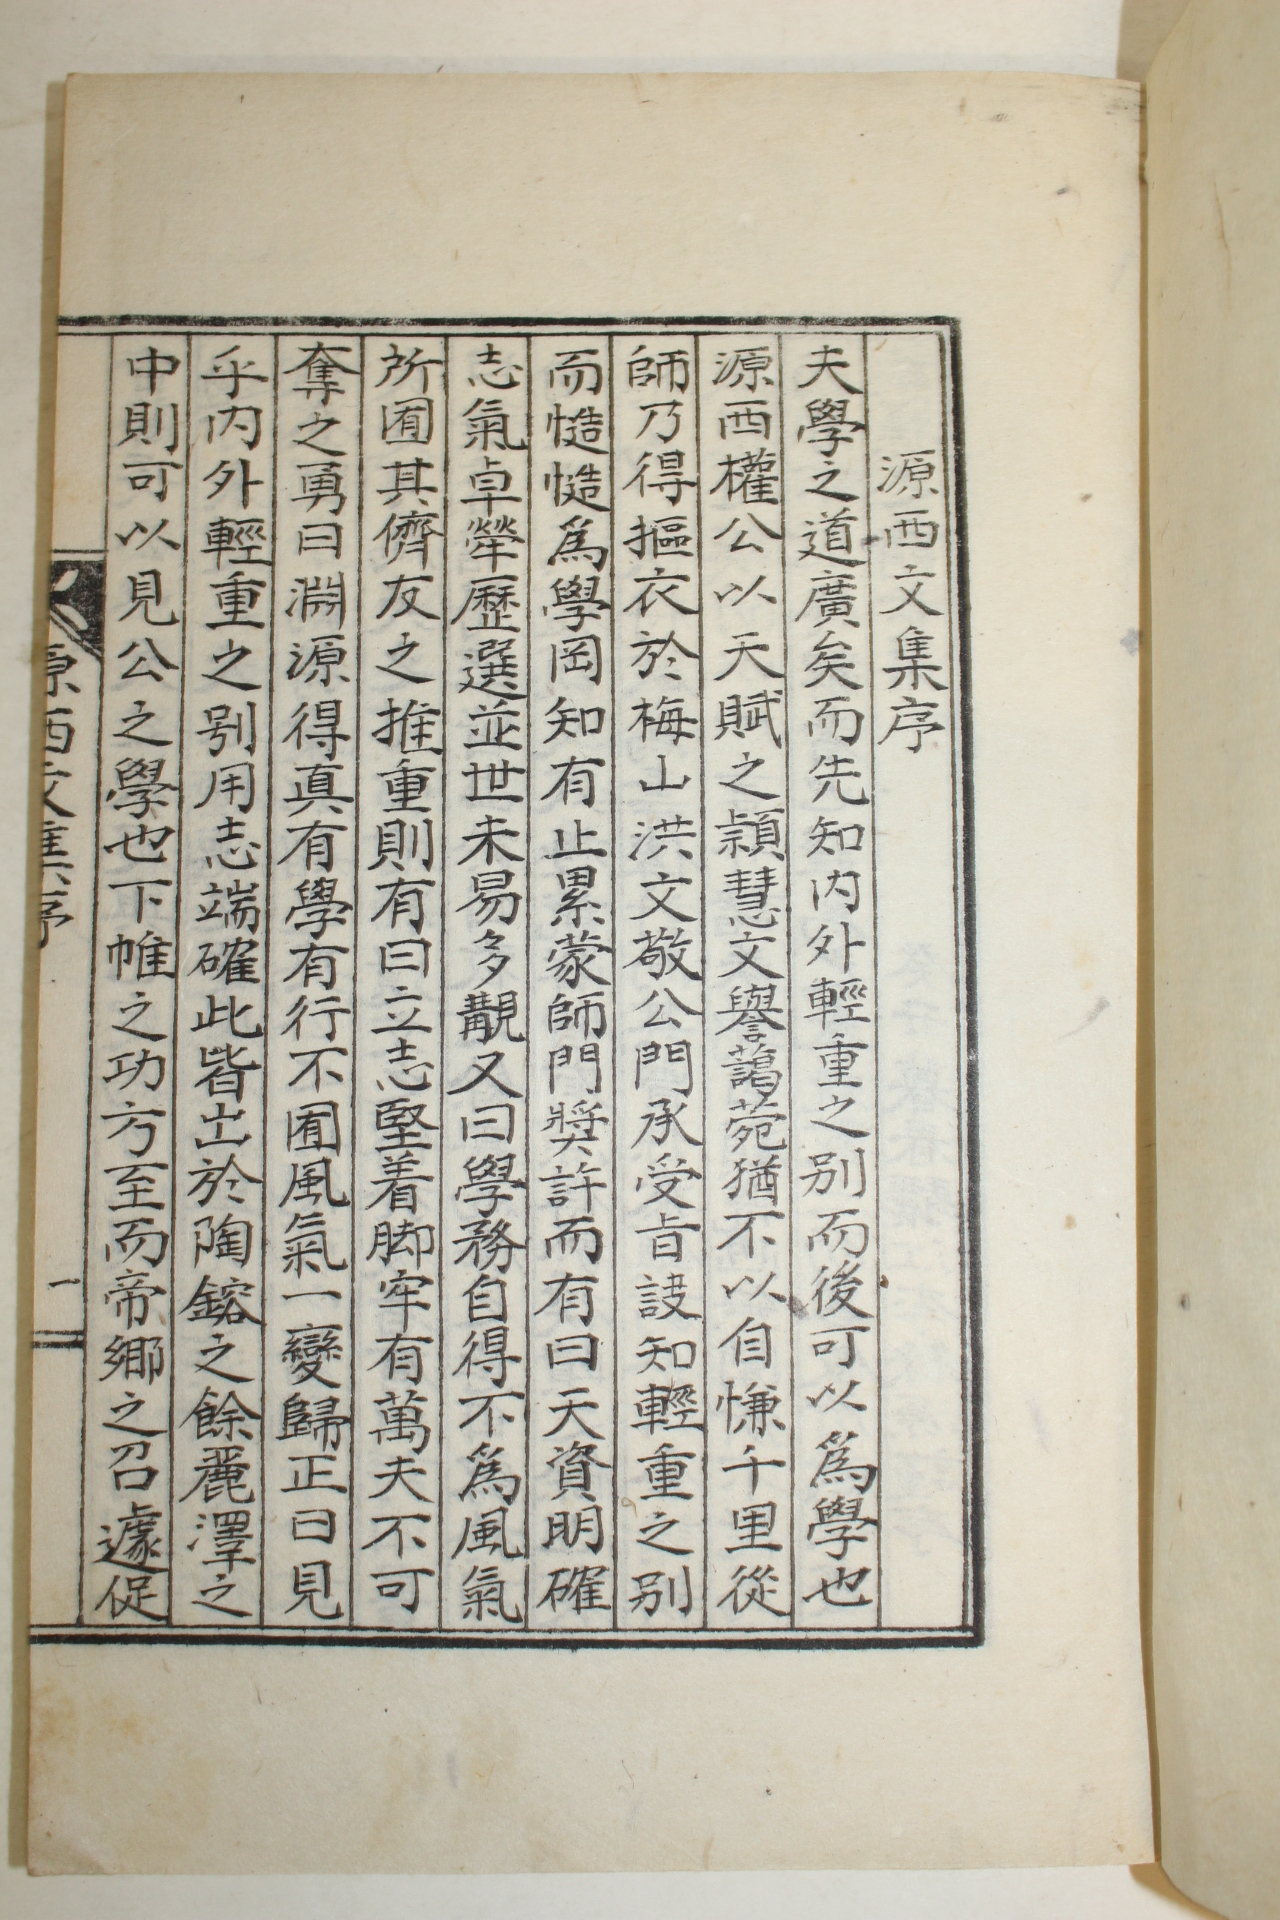 源西文集序
夫學之道廣矣而先知内外輕重之别而後可以爲學也
源西權公以天賦之頴慧文譽藹菀猶不以自慊千里從
師乃得摳衣於梅山洪文敬公門承受旨詖知輕重之别
而慥慥爲學罔知有止累蒙師門奬許而有曰天資明確
志氣卓犖歷選並世未易多覯又曰學務自得不爲風氣
所囿其儕友之推重則有曰立志堅着脚牢有萬夫不可
奪之勇曰淵源得真有學有行不囿風氣一變歸正曰見
乎内外輕重之别用志端確此皆出於陶鎔之餘麗澤之
中則可以見公之學也下帷之功方至而帝鄉之召遽促
源西文集序
一